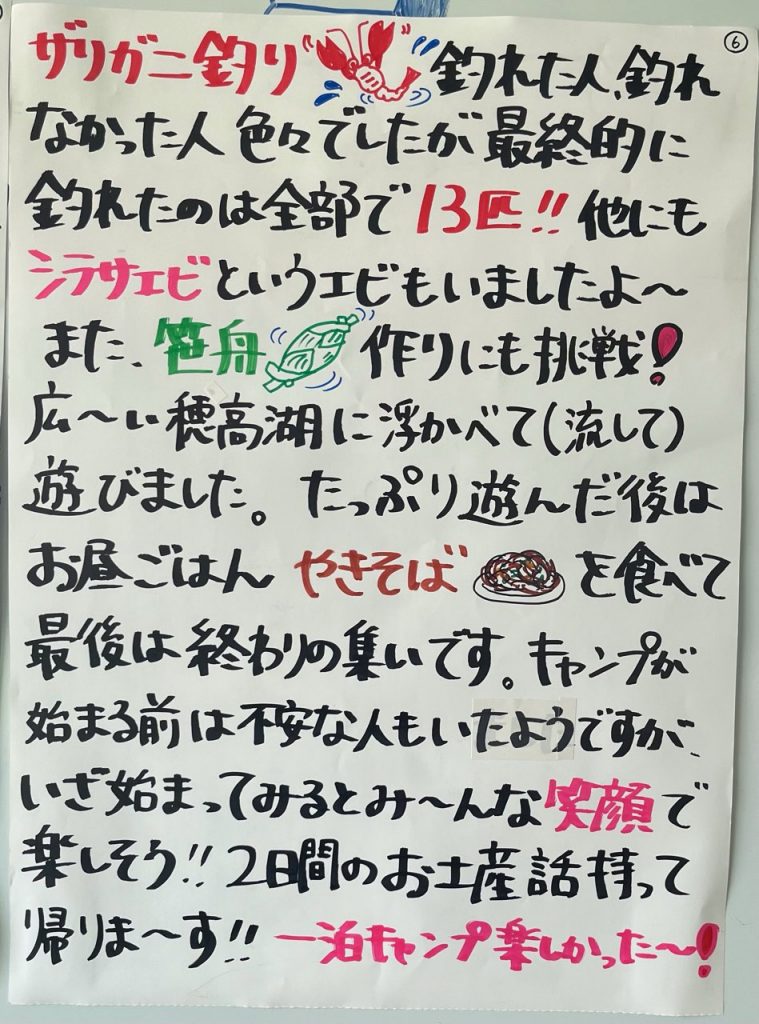 ⑥
ザリガニ釣り 釣れた人、釣れ
なかった人 色々でしたが 最終的に
釣れたのは全部で 13匹!! 他にも
シラサエビというエビもいましたよ〜
また、笹舟 作りにも挑戦!
広〜い 穂高湖に浮かべて(流して)
遊びました。たっぷり遊んだ後は
お昼ごはん やきそば を食べて
最後は終わりの集いです。キャンプが
始まる前は不安な人もいたようですが、
いざ始まってみるとみ〜んな笑顔で
楽しそう!! 2日間のお土産話持って
帰りま〜す!! 一泊キャンプ楽しかった〜!